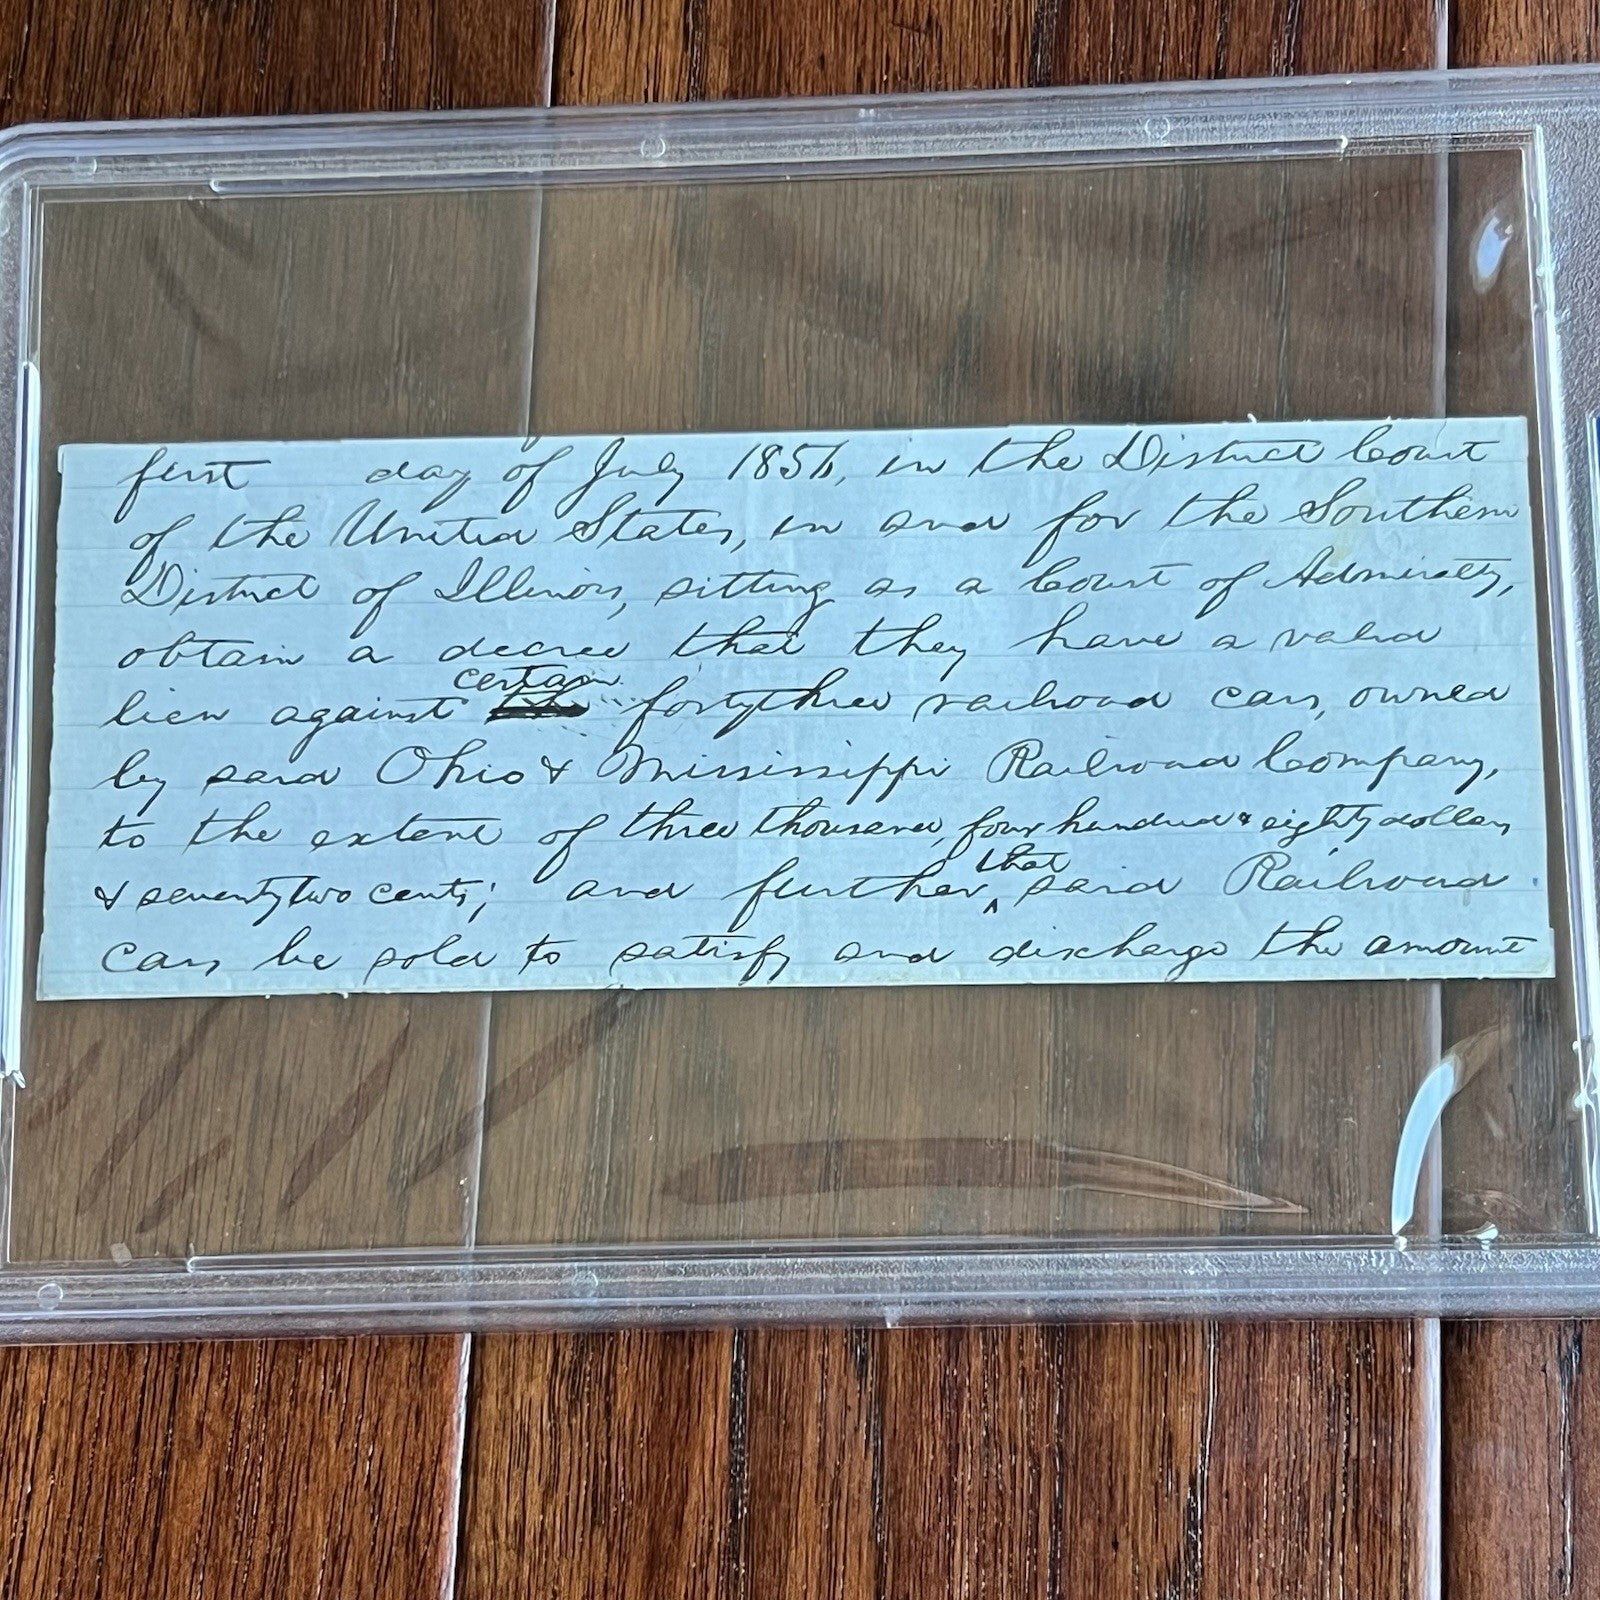 first day of July 1856, in the District Court
of the United States, in and for the Southern
District of Illinois, sitting as a Court of Admiralty,
obtain a decree that they have a valid
certain
lien against fortythree railroad cars, owned
by said Ohio & Mississippi Railroad Company,
to the extent of three thousand, four hundred & eighty dollars
that
& seventytwo cents; and further, ^ said Railroad
cars be sold to satisfy and discharge the amount